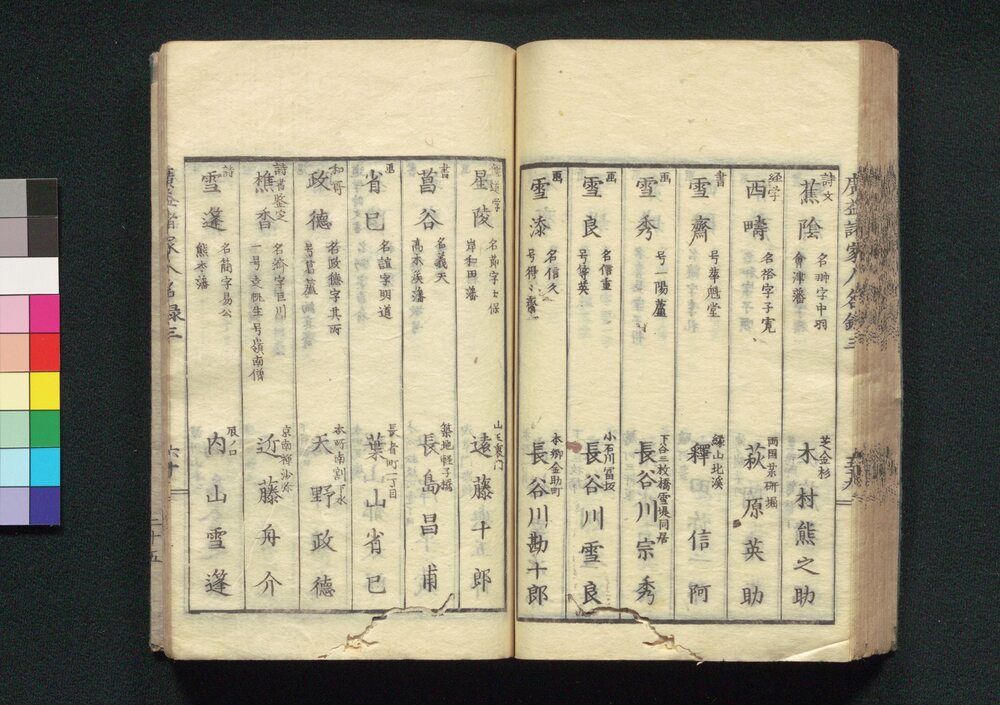 廣益諸家人名録三
五十九
詩文
蕉陰
名翀字中羽
會津藩
芝金杉
木村熊之助
経学
西疇
名裕字子寛
両国薬研堀
萩原英助
書
雪齋
号華魁堂
縁山北渓
釋信一阿
画
雪秀
号一陽蘆
下谷三枚橋雪堤同居
長谷川宗秀
画
雪良
名信重
号等英
小石川冨坂
長谷川雪良
画
雪漆
名信久
号得々齋
本郷金助町
長谷川勘十郎
星陵
名節字士保
岸和田藩
山王裏門
遠藤十郎
書
菖谷
名義天
高木矦藩
築地軽子橋
長島昌甫
省巳
名誼字明道
長者町一丁目
葉山省巳
和哥
政徳
名政徳字其所
号葛蘆
本所南割下水
天野政徳
詩書鑒定
樵香
名濟字巨川
一号壺瓢生号嶺南僧
京南禅沙弥
近藤舟介
詩
雪蓬
名簡字易公
熊本藩
辰ノ口
内山雪蓬
廣益諸家人名録三
六十
二十五